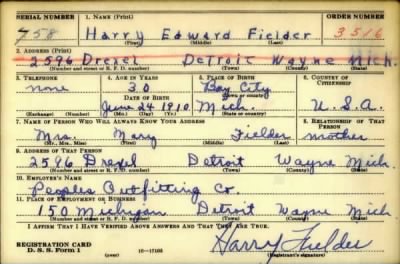 SERIAL NUMBER 1. NAME (Print) ORDER NUMBER
758 Harry Edward Fielder 3516
(First) (Middle) (Last)
2. ADDRESS (Print)
2596 Drexel Detroit Wayne Mich.
(Number and street or R. F. D. number) (Town) (County) (State)
3. TELEPHONE 4. AGE IN YEARS 5. PLACE OF BIRTH 6. COUNTRY OF CITIZENSHIP
none 30 Bay City
DATE OF BIRTH (Town or county)
June 24 1910 Mich. U. S. A.
(Exchange) (Number) (Mo.) (Day) (Yr.) (State or country)
7. NAME OF PERSON WHO WILL ALWAYS KNOW YOUR ADDRESS 8. RELATIONSHIP OF THAT PERSON
Mrs. Mary Fielder mother
(Mr., Mrs., Miss) (First) (Middle) (Last)
9. ADDRESS OF THAT PERSON
2596 Drexel Detroit Wayne Mich.
(Number and street or R. F. D. number) (Town) (County) (State)
10. EMPLOYER'S NAME
Peoples Outfitting Co.
11. PLACE OF EMPLOYMENT OR BUSINESS
150 Michigan Detroit Wayne Mich
(Number and street or R. F. D. number) (Town) (County) (State)
I AFFIRM THAT I HAVE VERIFIED ABOVE ANSWERS AND THAT THEY ARE TRUE.
REGISTRATION CARD
D. S. S. Form 1 (over) Harry Fielder
(Registrant's signature)